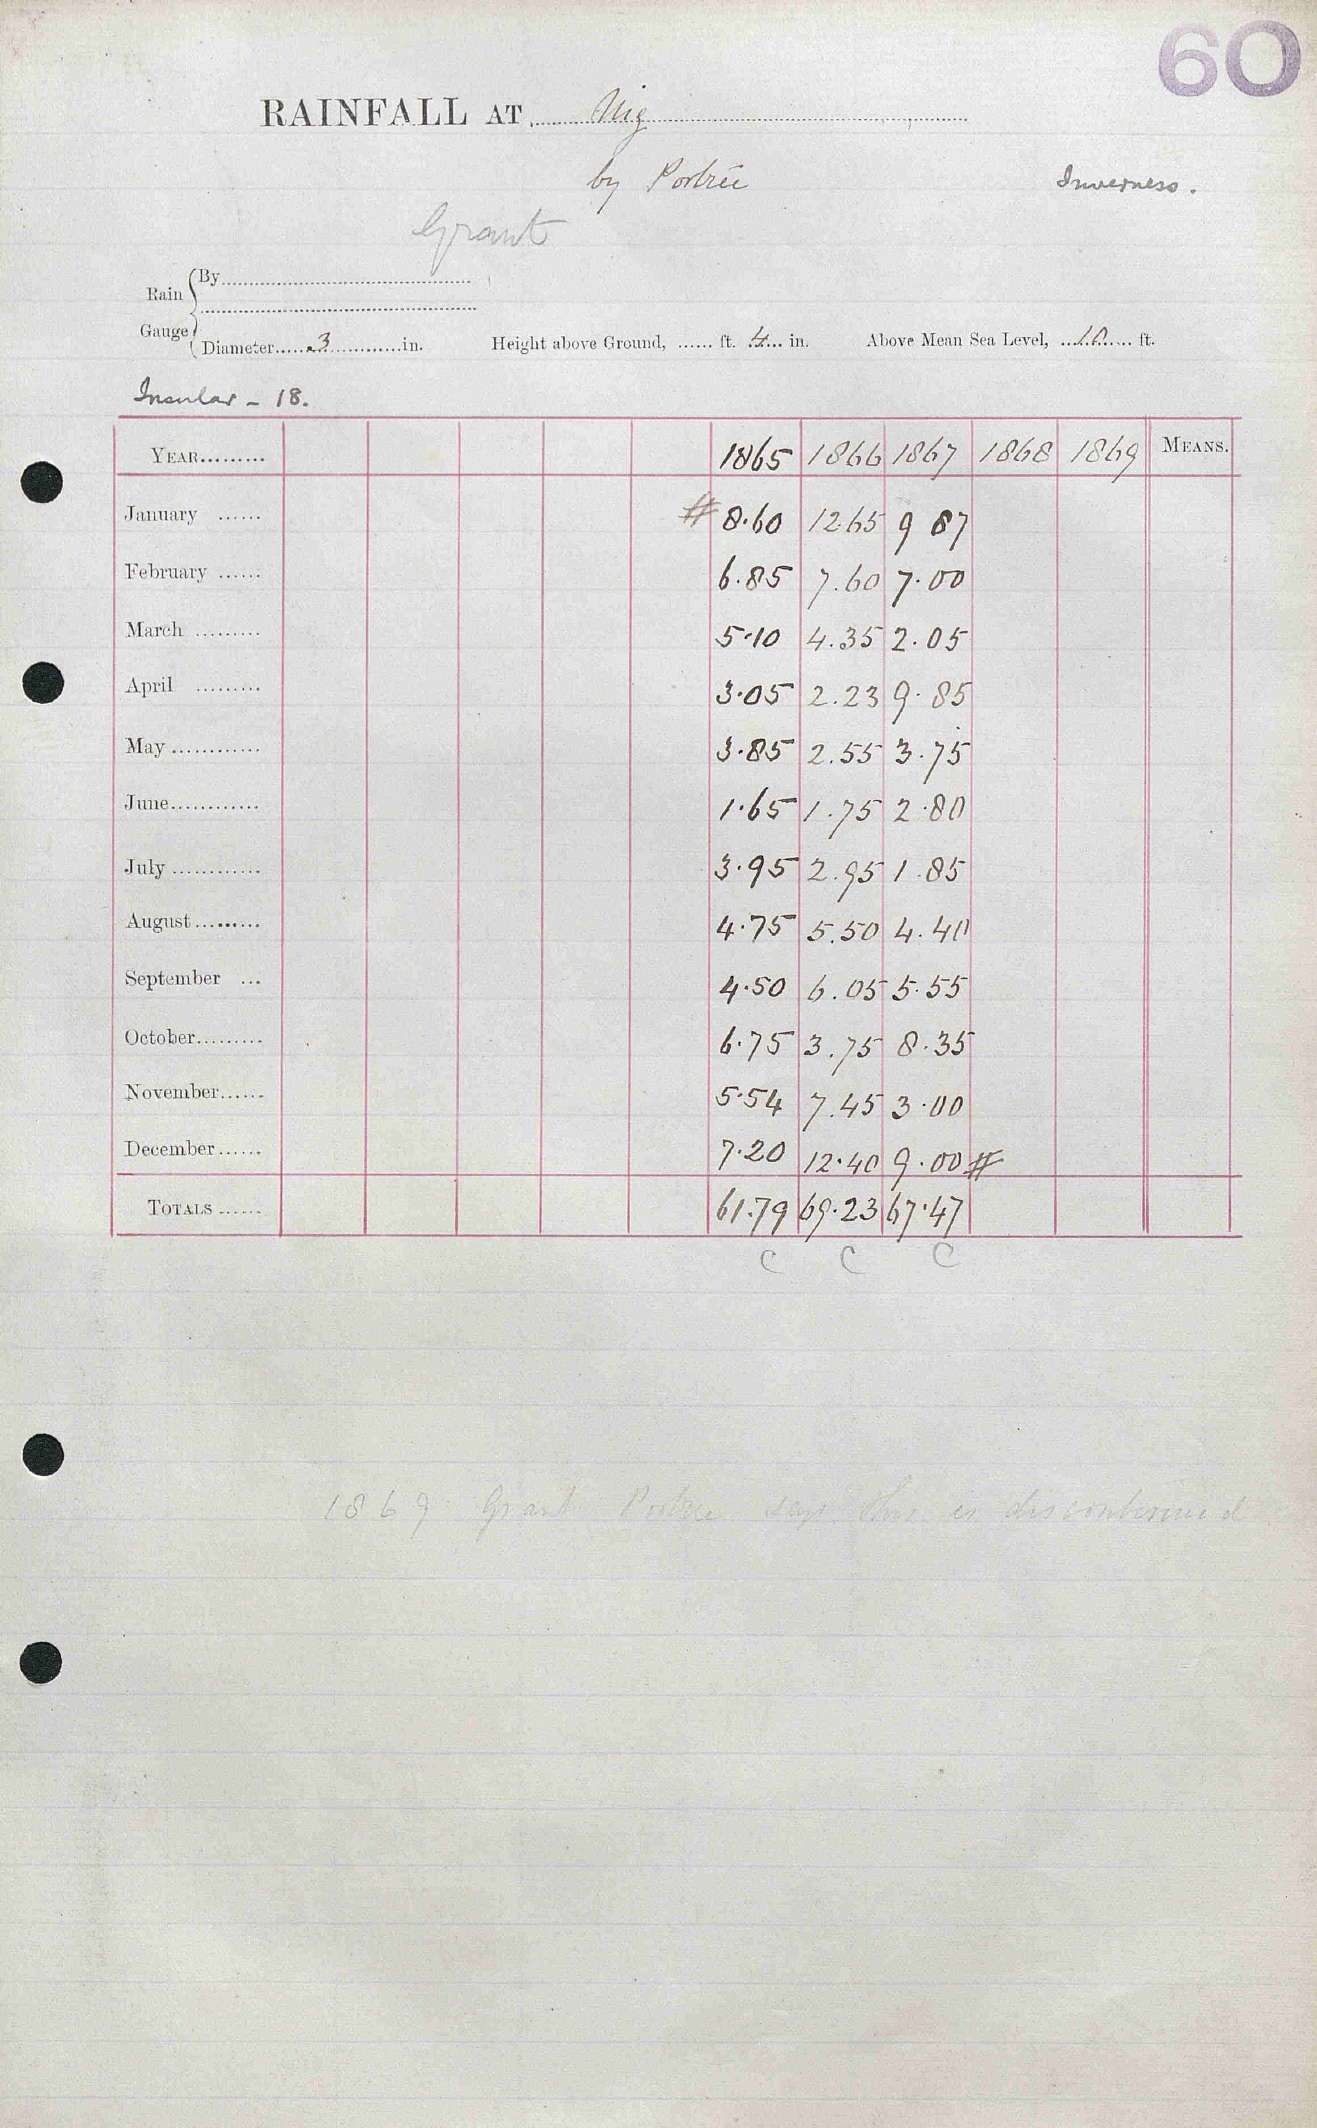 60
RAINFALL AT Uig
by Portree Inverness.
Grant
Rain Gauge { By
Diameter 3 in. Height above Ground, ft. 4 in. Above Mean Sea Level, 10 ft.
Insular - 18.
YEAR 1865 1866 1867 1868 1869 MEANS.
January # 8.60 12.65 9 87
February 6.85 7.60 7.00
March 5.10 4.35 2.05
April 3.05 2.23 9.85
May 3.85 2.55 3.75
June 1.65 1.75 2.80
July 3.95 2.95 1.85
August 4.75 5.50 4.40
September 4.50 6.05 5.55
October 6.75 3.75 8.35
November 5.54 7.45 3.00
December 7.20 12.40 9.00 #
TOTALS 61.79 69.23 67.47
C C C
1869 Grant Portree says this is discontinued